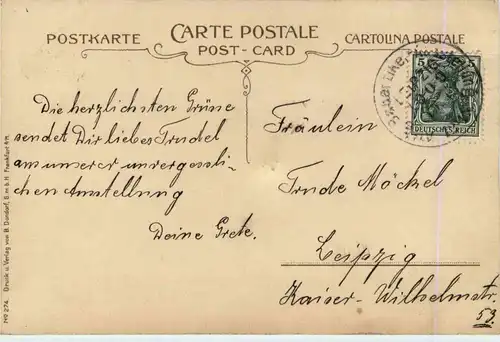 POSTKARTE CARTE POSTALE CARTOLINA POSTALE
POST-CARD
5
DEUTSCHES REICH
Die herzlichsten Grüne
sendet Dir liebes Trudel
am unserer unvergessli-
chen Ausstellung
Deine Grete.
Fräulein
Trude Möckel
Leipzig
Kaiser-Wilhelmstr.
53.
No 274. Druck u. Verlag von B. Dondorf, G m b H. Frankfurt a/M.